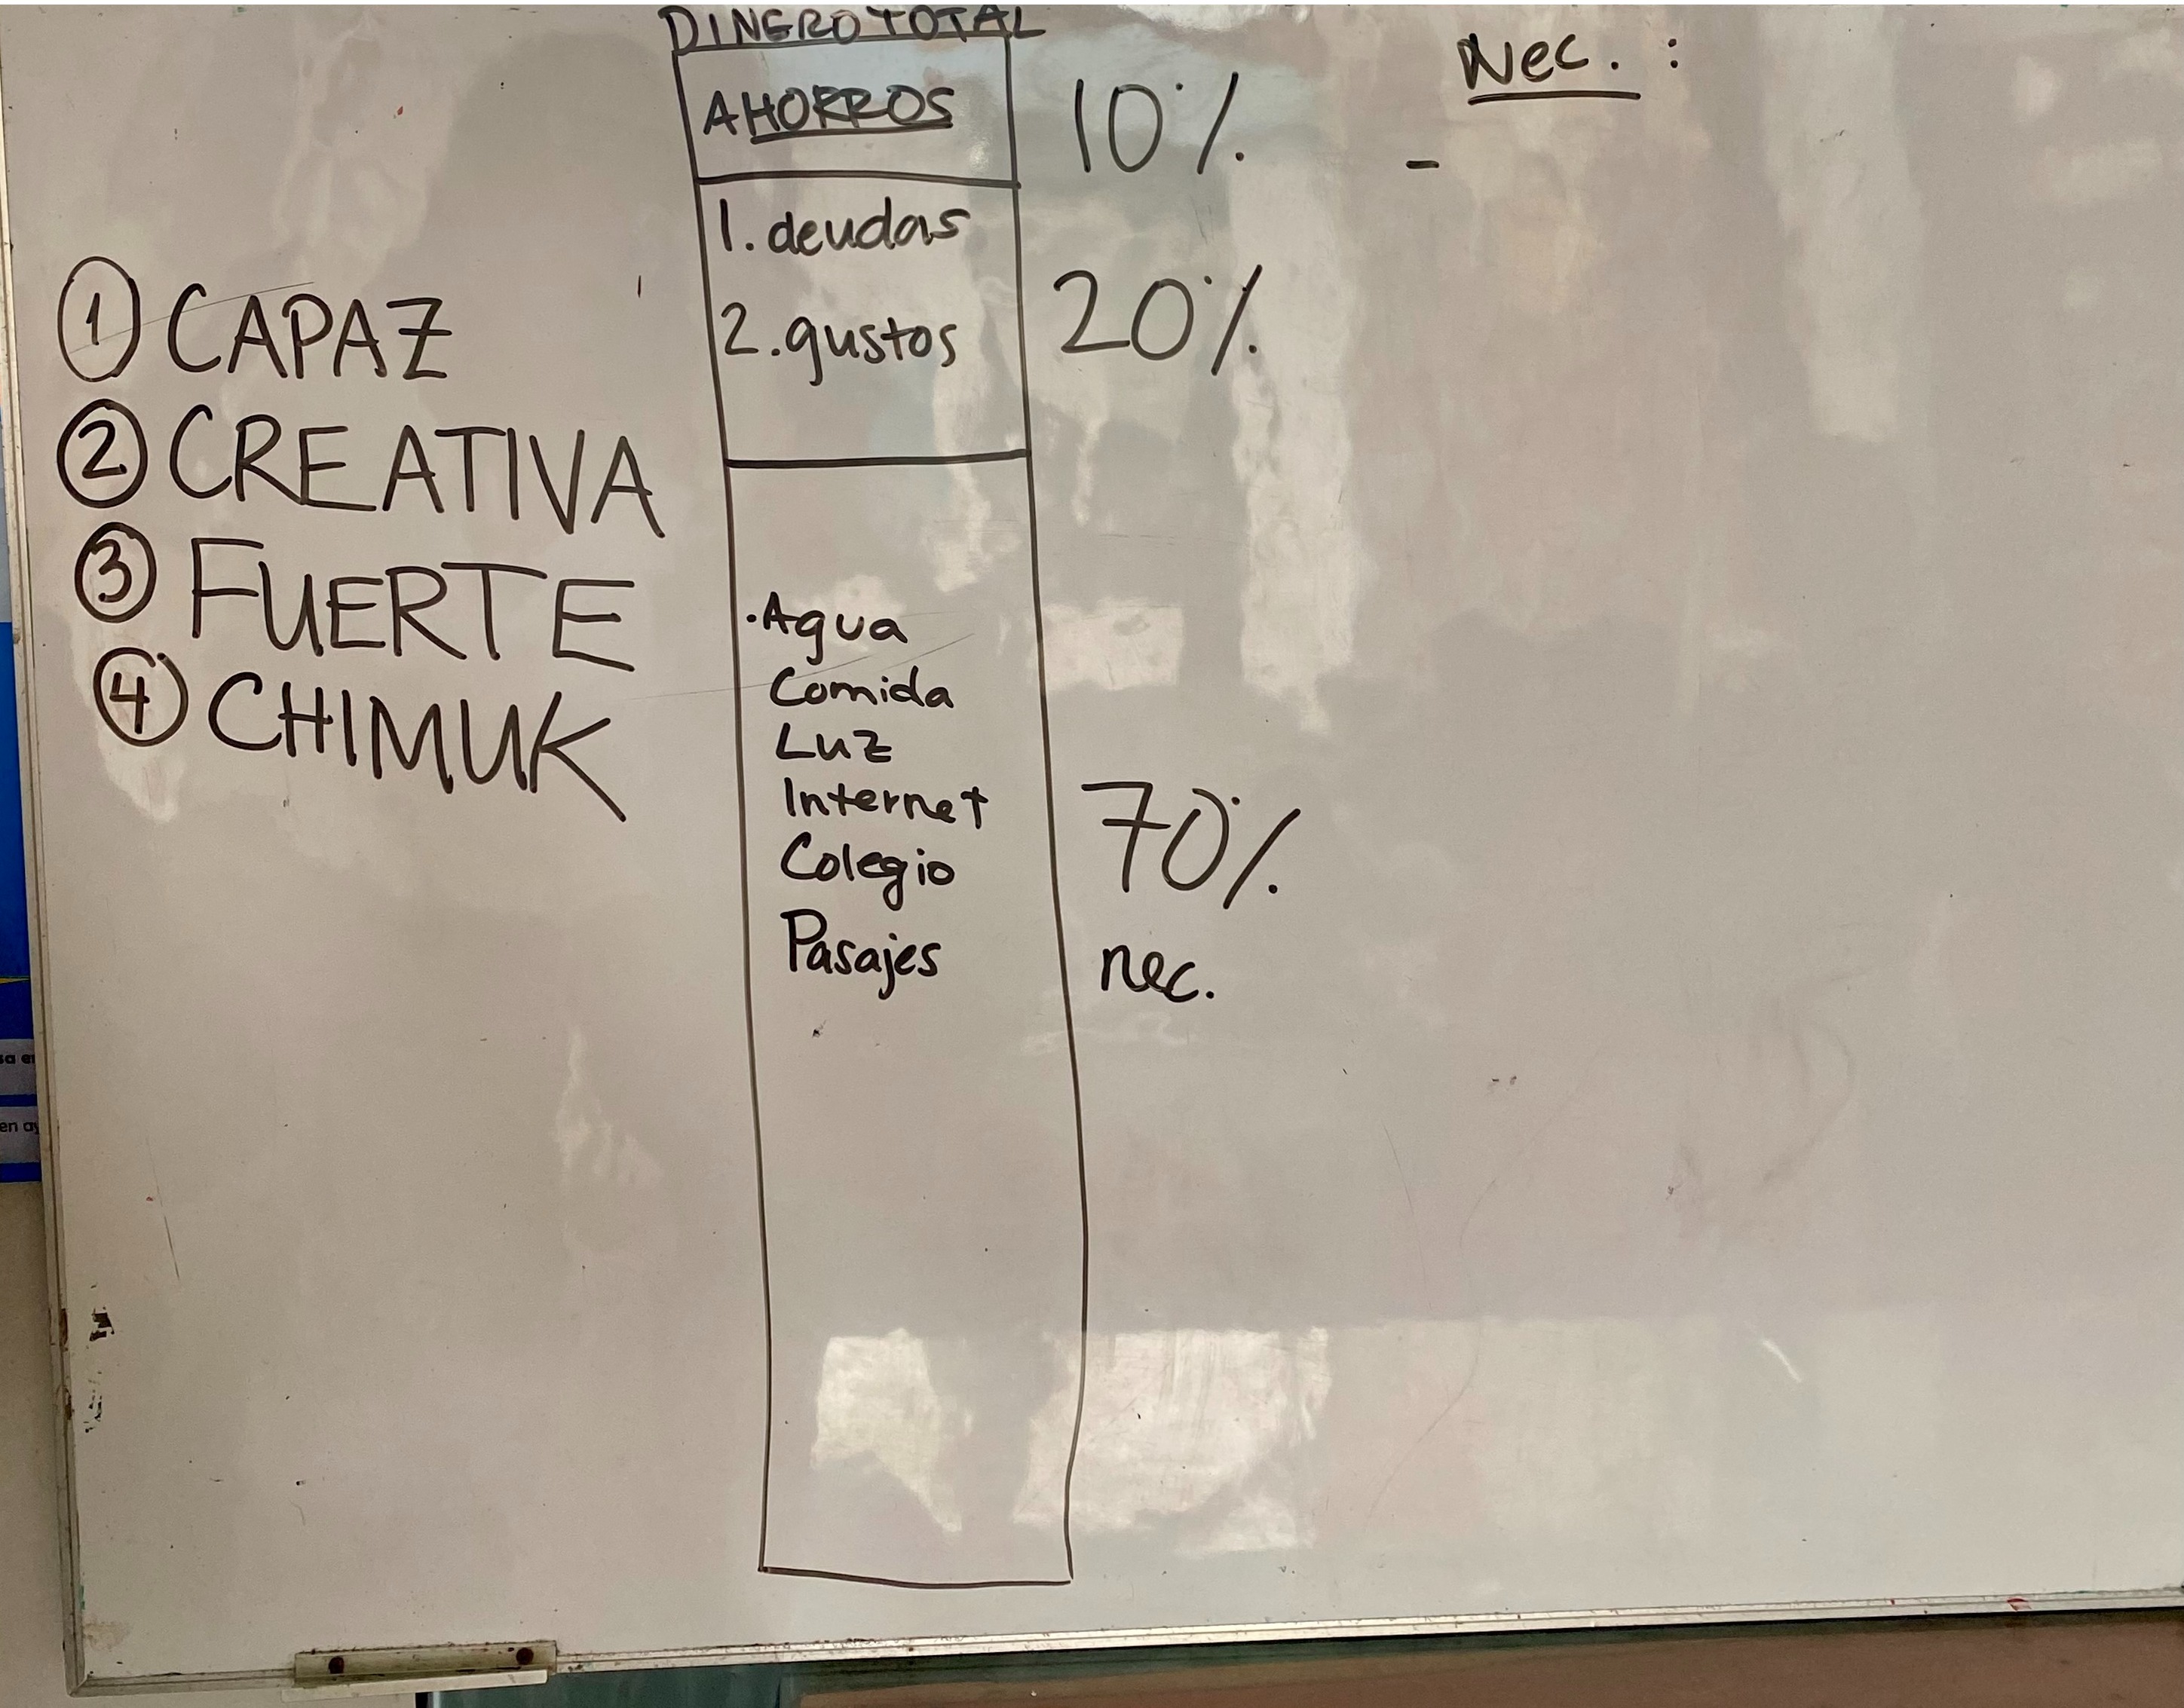 DINERO TOTAL
AHORROS 10%
1. deudas
2. gustos 20%
· Agua
Comida
Luz
Internet
Colegio
Pasajes
70%
nec.
① CAPAZ
② CREATIVA
③ FUERTE
④ CHIMUK
Nec. :
-
sa en
en ay